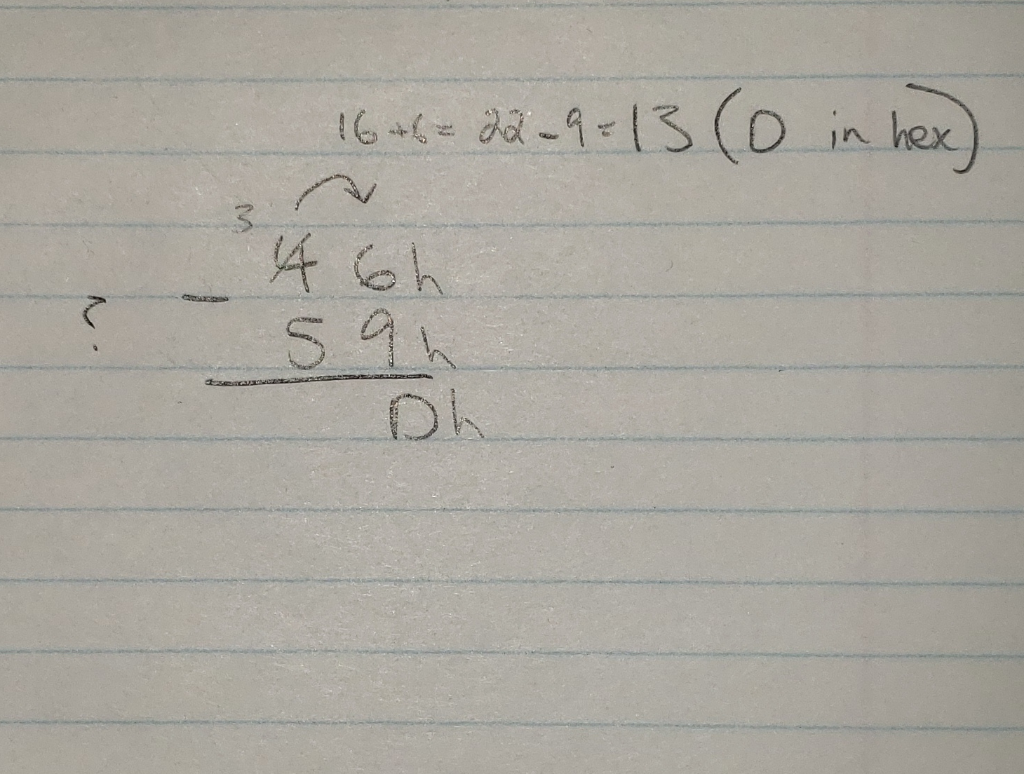 16 + 6 = 22 - 9 = 13 (D in hex)
3
4 6h
?
-
5 9h
Dh